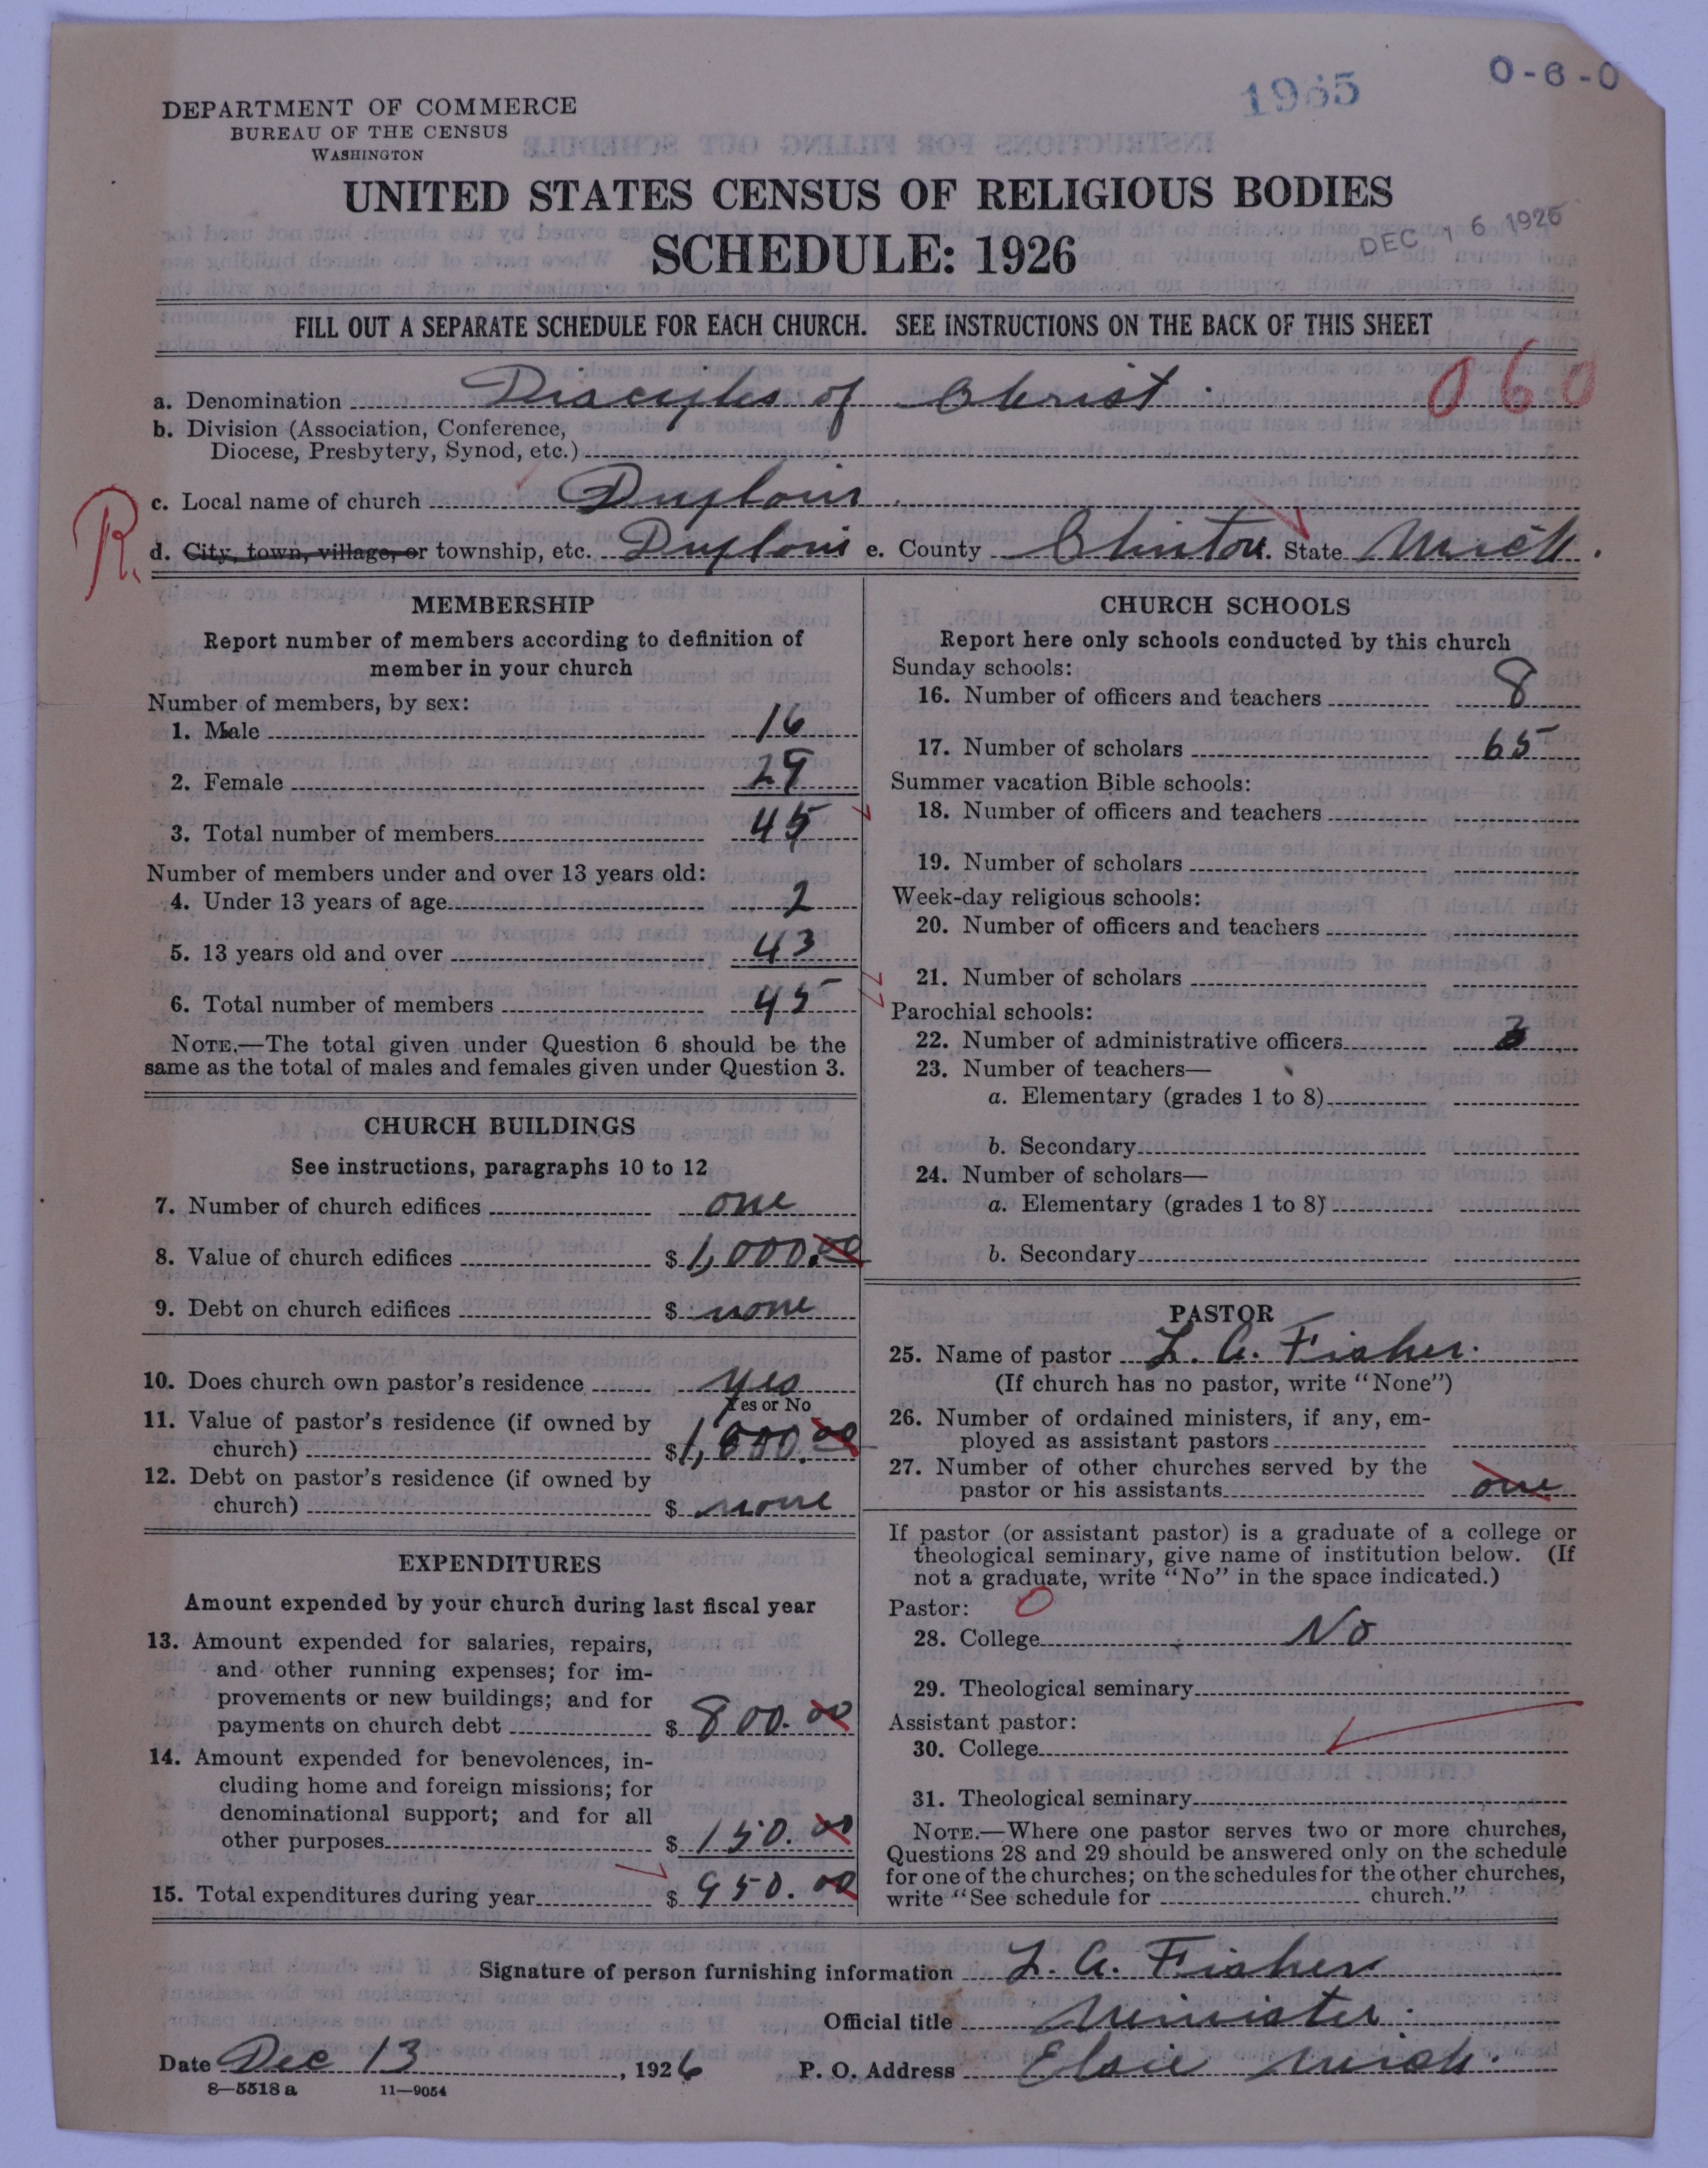 1965
0-6-0
DEPARTMENT OF COMMERCE
BUREAU OF THE CENSUS
WASHINGTON
UNITED STATES CENSUS OF RELIGIOUS BODIES
SCHEDULE: 1926
DEC 16 1926
FILL OUT A SEPARATE SCHEDULE FOR EACH CHURCH. SEE INSTRUCTIONS ON THE BACK OF THIS SHEET
060
a. Denomination Disciples of Christ
b. Division (Association, Conference,
Diocese, Presbytery, Synod, etc.)
R.
c. Local name of church Duplain
d. City, town, village, or township, etc. Duplain e. County Clinton. State Mich.
MEMBERSHIP
Report number of members according to definition of
member in your church
Number of members, by sex:
1. Male 16
2. Female 29
3. Total number of members 45
Number of members under and over 13 years old:
4. Under 13 years of age 2
5. 13 years old and over 43
6. Total number of members 45
NOTE.—The total given under Question 6 should be the
same as the total of males and females given under Question 3.
CHURCH BUILDINGS
See instructions, paragraphs 10 to 12
7. Number of church edifices one
8. Value of church edifices $1,000.00
9. Debt on church edifices $ none
10. Does church own pastor's residence yes
Yes or No
11. Value of pastor's residence (if owned by
church) $
12. Debt on pastor's residence (if owned by
church) $ none
EXPENDITURES
Amount expended by your church during last fiscal year
13. Amount expended for salaries, repairs,
and other running expenses; for im-
provements or new buildings; and for
payments on church debt $ 800.00
14. Amount expended for benevolences, in-
cluding home and foreign missions; for
denominational support; and for all
other purposes $ 150.00
15. Total expenditures during year $ 950.00
CHURCH SCHOOLS
Report here only schools conducted by this church
Sunday schools:
16. Number of officers and teachers 8
17. Number of scholars 65
Summer vacation Bible schools:
18. Number of officers and teachers
19. Number of scholars
Week-day religious schools:
20. Number of officers and teachers
21. Number of scholars
Parochial schools:
22. Number of administrative officers
23. Number of teachers—
a. Elementary (grades 1 to 8)
b. Secondary
24. Number of scholars—
a. Elementary (grades 1 to 8)
b. Secondary
PASTOR
25. Name of pastor L. A. Fisher.
(If church has no pastor, write "None")
26. Number of ordained ministers, if any, em-
ployed as assistant pastors
27. Number of other churches served by the
pastor or his assistants one
If pastor (or assistant pastor) is a graduate of a college or
theological seminary, give name of institution below. (If
not a graduate, write "No" in the space indicated.)
Pastor: 0
28. College No
29. Theological seminary
Assistant pastor:
30. College
31. Theological seminary
NOTE.—Where one pastor serves two or more churches,
Questions 28 and 29 should be answered only on the schedule
for one of the churches; on the schedules for the other churches,
write "See schedule for church."
Signature of person furnishing information L. A. Fisher
Official title Minister.
Date Dec 13, 1926 P. O. Address Elsie Mich.
8—5518 a 11—9054